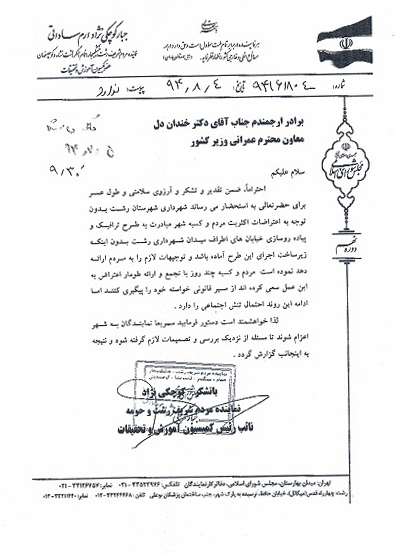 جبار کوچکی نژاد ارم ساداتی
شماره: ۹۴۱۶۱۸۰۴ تاریخ: ۹۴،۸،۴ پیوست: ندارد
برادر ارجمندم جناب آقای دکتر خندان دل
معاون محترم عمرانی وزیر کشور
۹،۳۰
سلام علیکم
احتراماً، ضمن تقدیر و تشکر و آرزوی سلامتی و طول عمر
برای حضرتعالی به استحضار می رساند شهرداری شهرستان رشت بدون
توجه به اعتراضات اکثریت مردم و کسبه شهر مبادرت به طرح ترافیک و
پیاده روسازی خیابان های اطراف میدان شهرداری رشت بدون اینکه
زیرساخت اجرای این طرح آماده باشد و توجیهات لازم را به مردم ارائه
دهد نموده است مردم و کسبه چند روز با تجمع و ارائه طومار اعتراض به
این عمل سعی کرده اند از مسیر قانونی خواسته خود را پیگیری کنند اما
ادامه این روند احتمال تنش اجتماعی را دارد .
لذا خواهشمند است دستور فرمایید سریعا نمایندگان به شهر
اعزام شوند تا مسئله از نزدیک بررسی و تصمیمات لازم گرفته شود و نتیجه
به اینجانب گزارش گردد .
باتشکر کوچکی نژاد
نماینده مردم شریف رشت و حومه
نائب رئیس کمیسیون آموزش و تحقیقات
مجلس شورای اسلامی
دوره نهم
تهران: میدان بهارستان، مجلس شورای اسلامی، دفاتر کار نمایندگان تلفکس: ۳۳۵۲۳۹۷۶-۰۲۱ نمابر: ۳۳۱۲۶۷۵۷-۰۲۱
رشت: چهارراه قدس (میکائیل)، خیابان حافظ، نرسیده به پارک شهر، جنب ساختمان پزشکان بوعلی